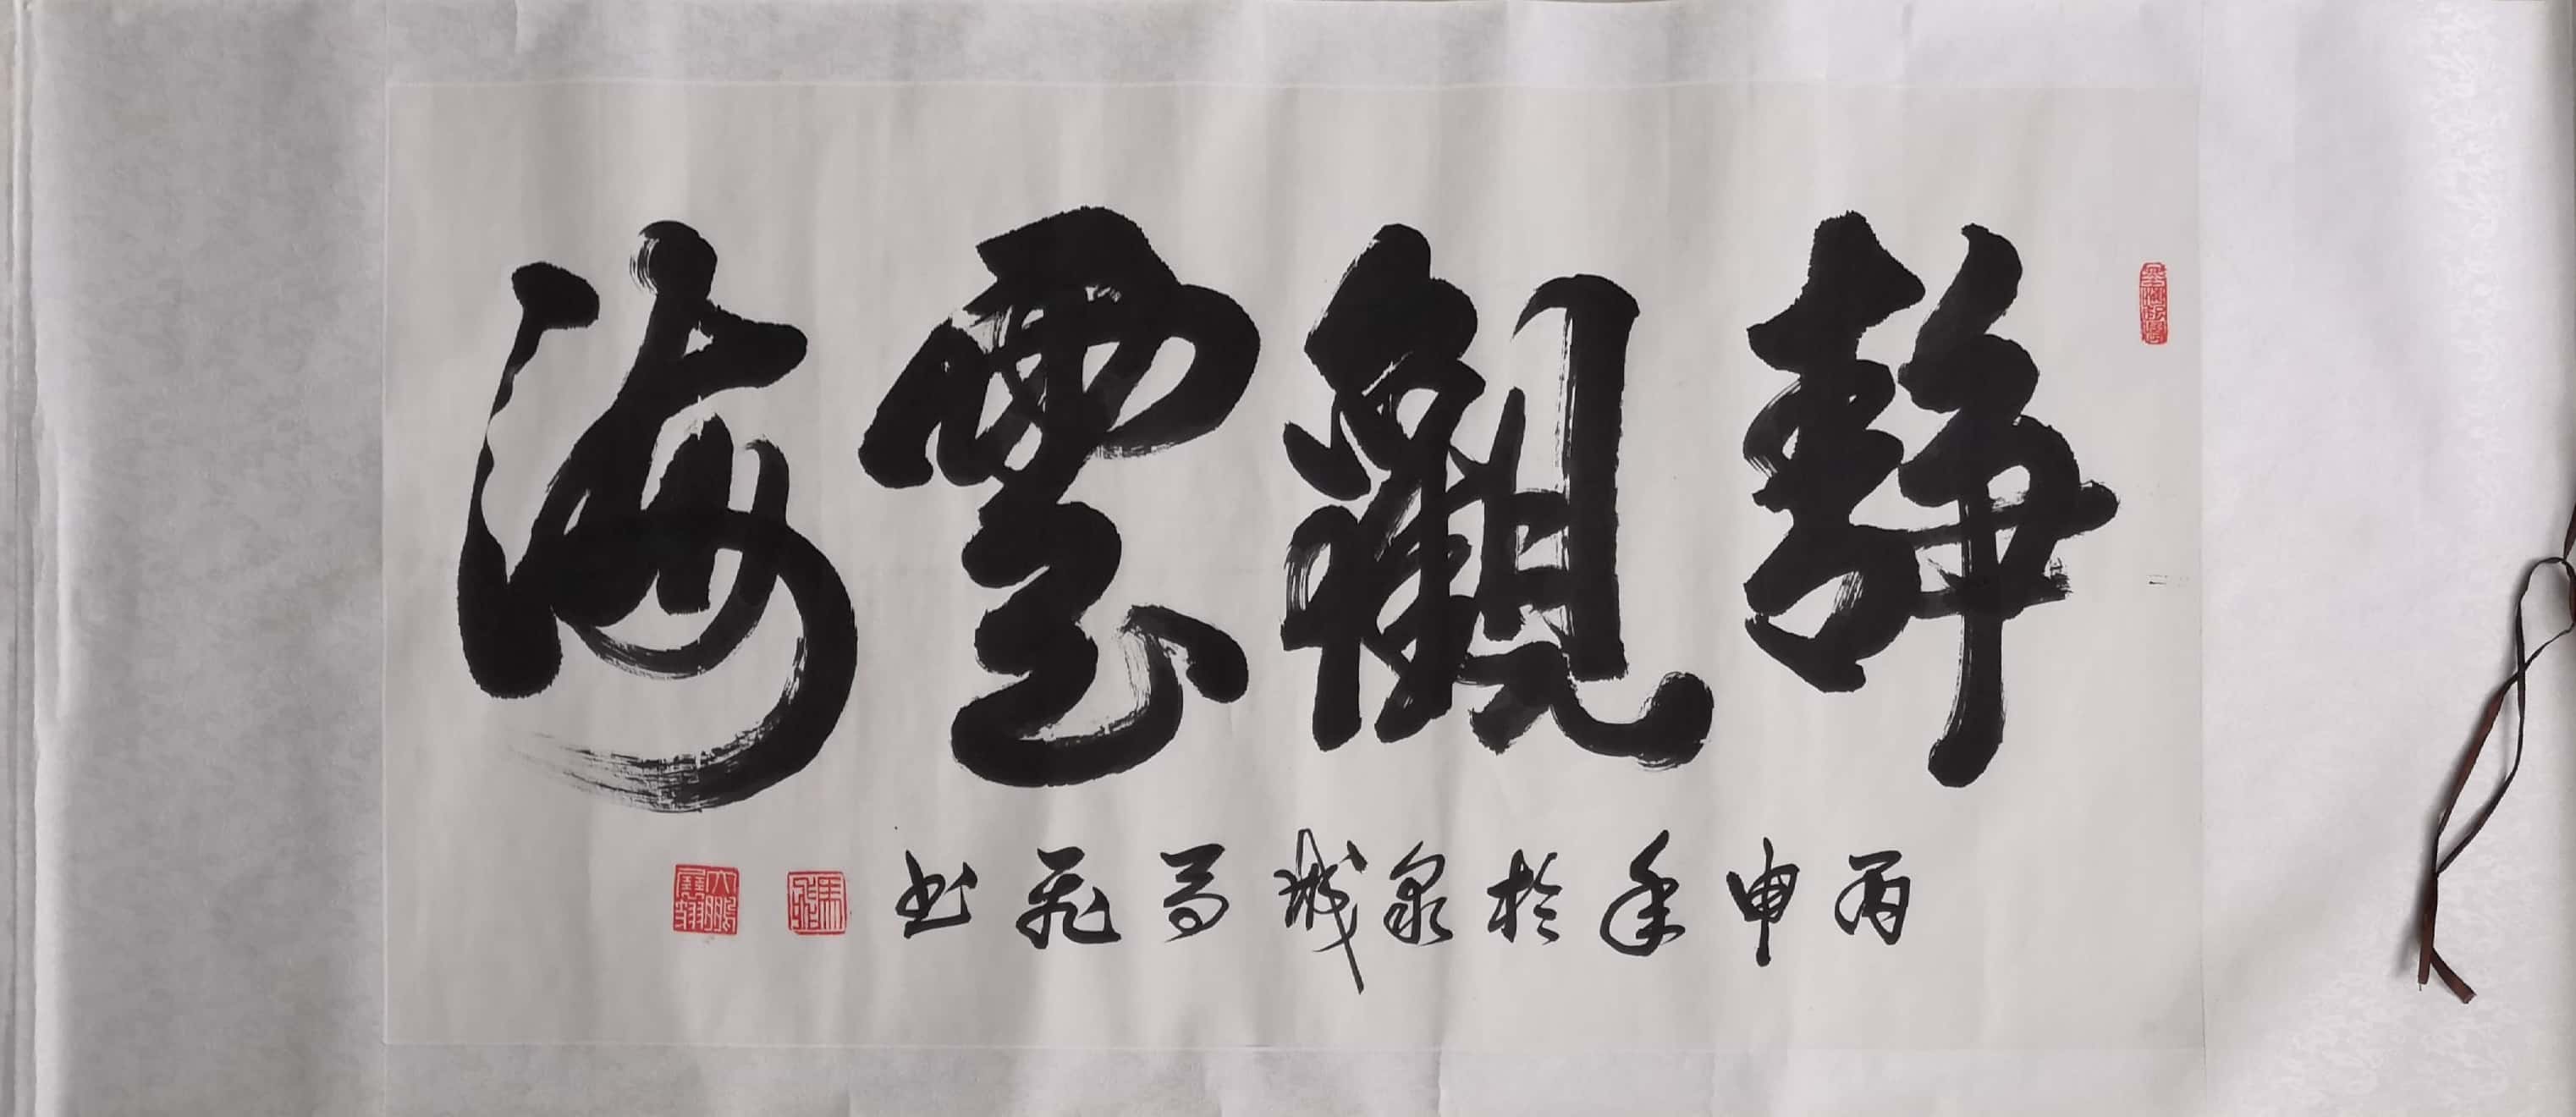 靜觀雲海
丙申年於泉城馬飛書